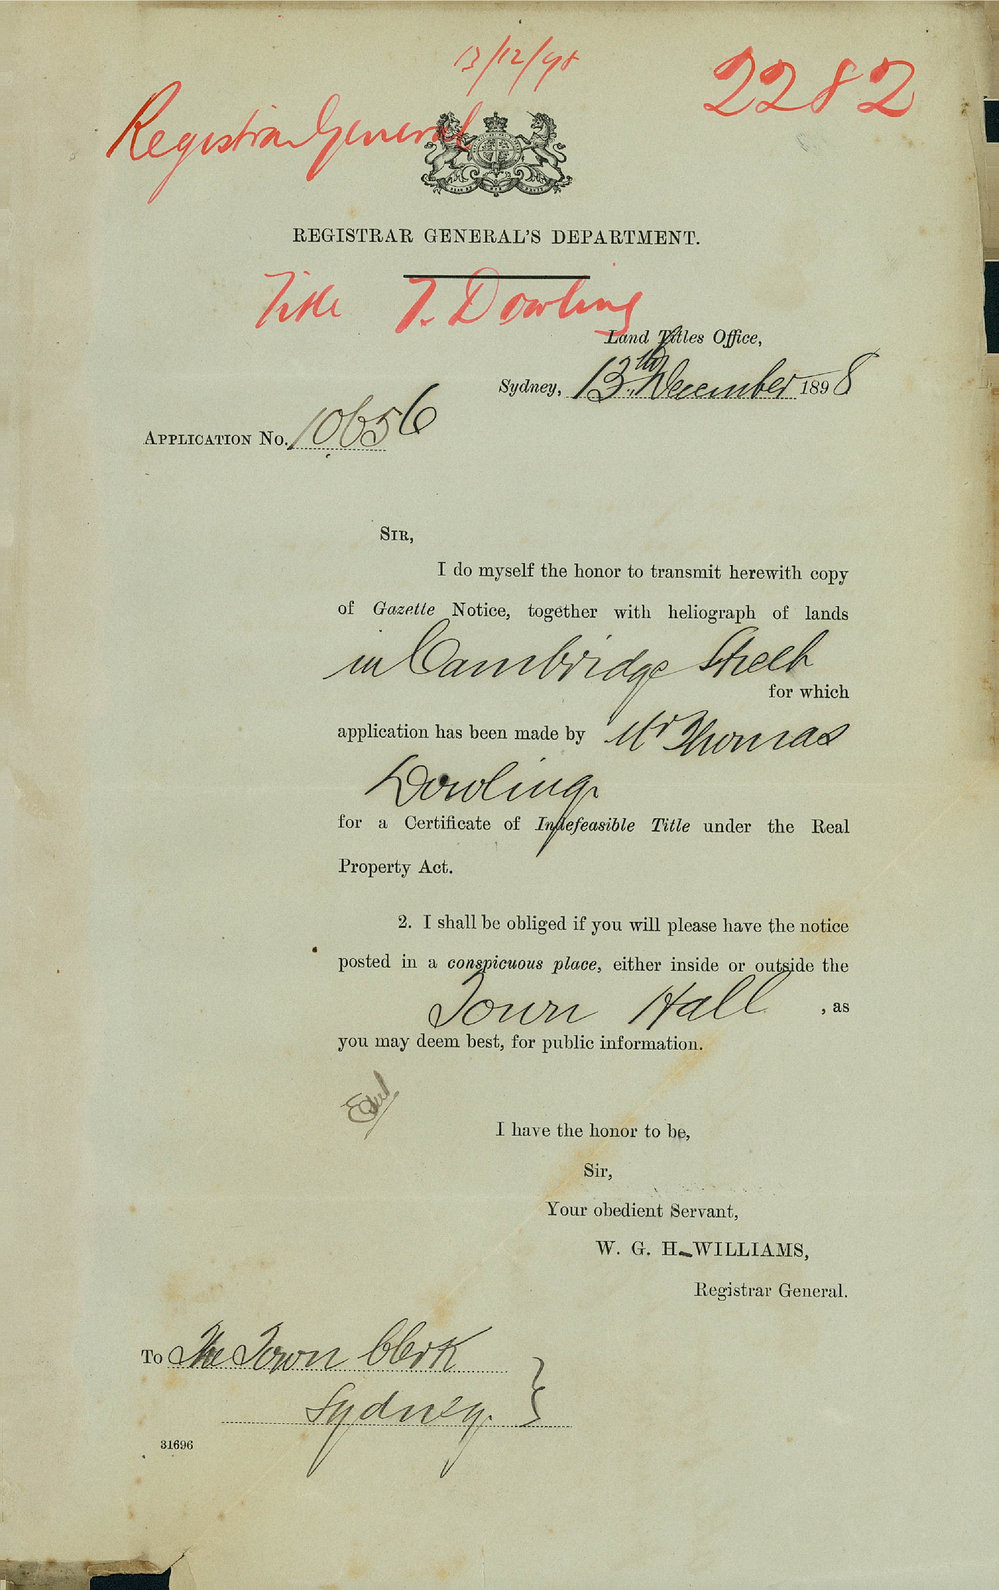 13/12/98
2282
Registrar General
REGISTRAR GENERAL'S DEPARTMENT.
Title T. Dowling
Land Titles Office,
Sydney, 13th December 1898
APPLICATION No. 10656
SIR,
I do myself the honor to transmit herewith copy
of Gazette Notice, together with heliograph of lands
in Cambridge Street
for which
application has been made by Mr Thomas
Dowling
for a Certificate of Indefeasible Title under the Real
Property Act.
2. I shall be obliged if you will please have the notice
posted in a conspicuous place, either inside or outside the
Town Hall , as
you may deem best, for public information.
I have the honor to be,
Sir,
Your obedient Servant,
W. G. H. WILLIAMS,
Registrar General.
To The Town Clerk
Sydney.
31696